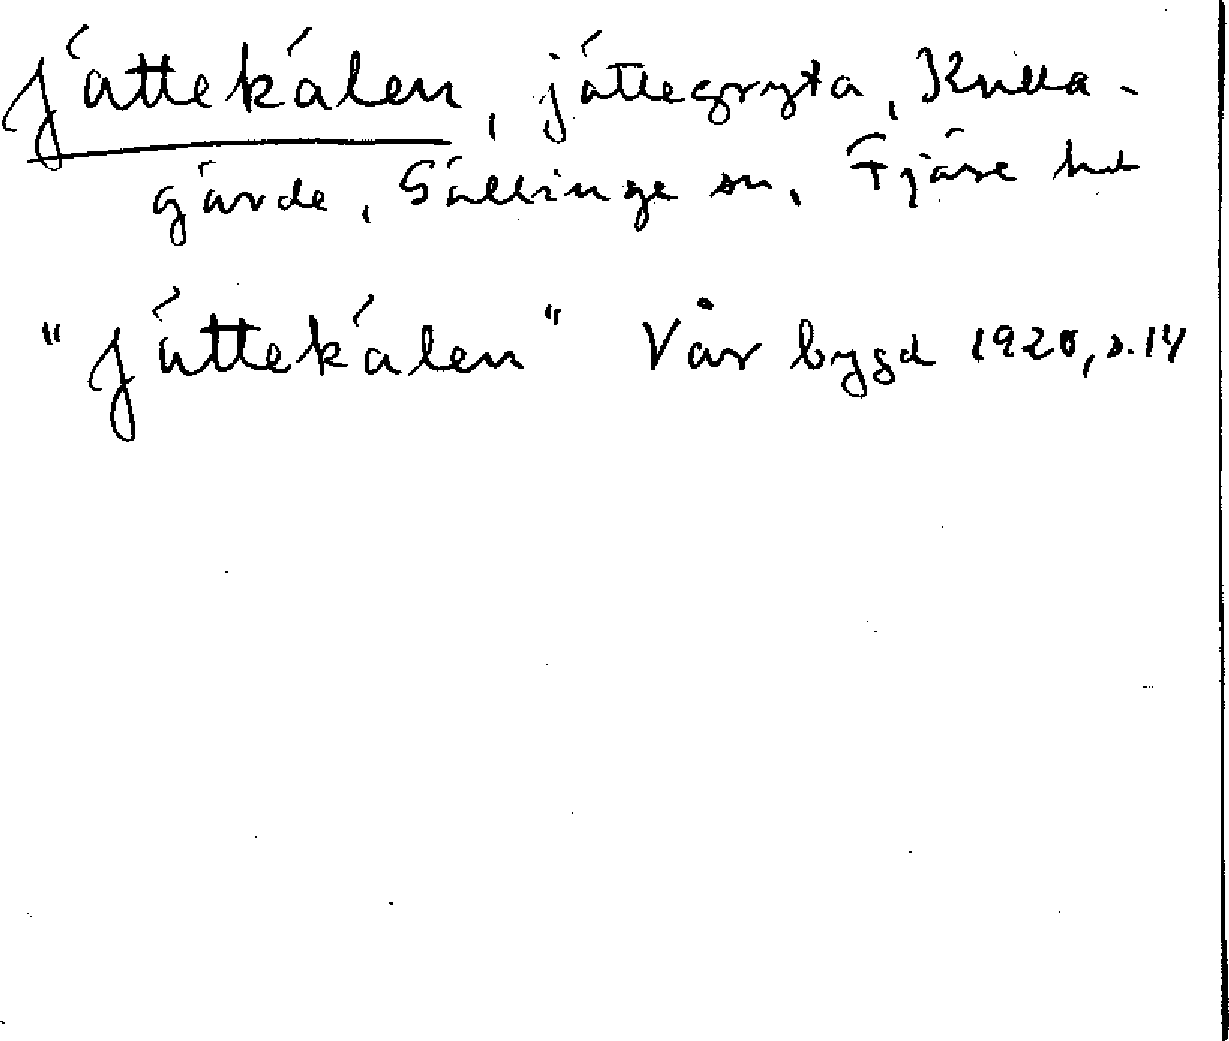 Jättekälen, jättegryta, Kulla-
gärde, Gällinge sn, Fjäre hd
"Jättekälen" Vår bygd 1920, s. 14